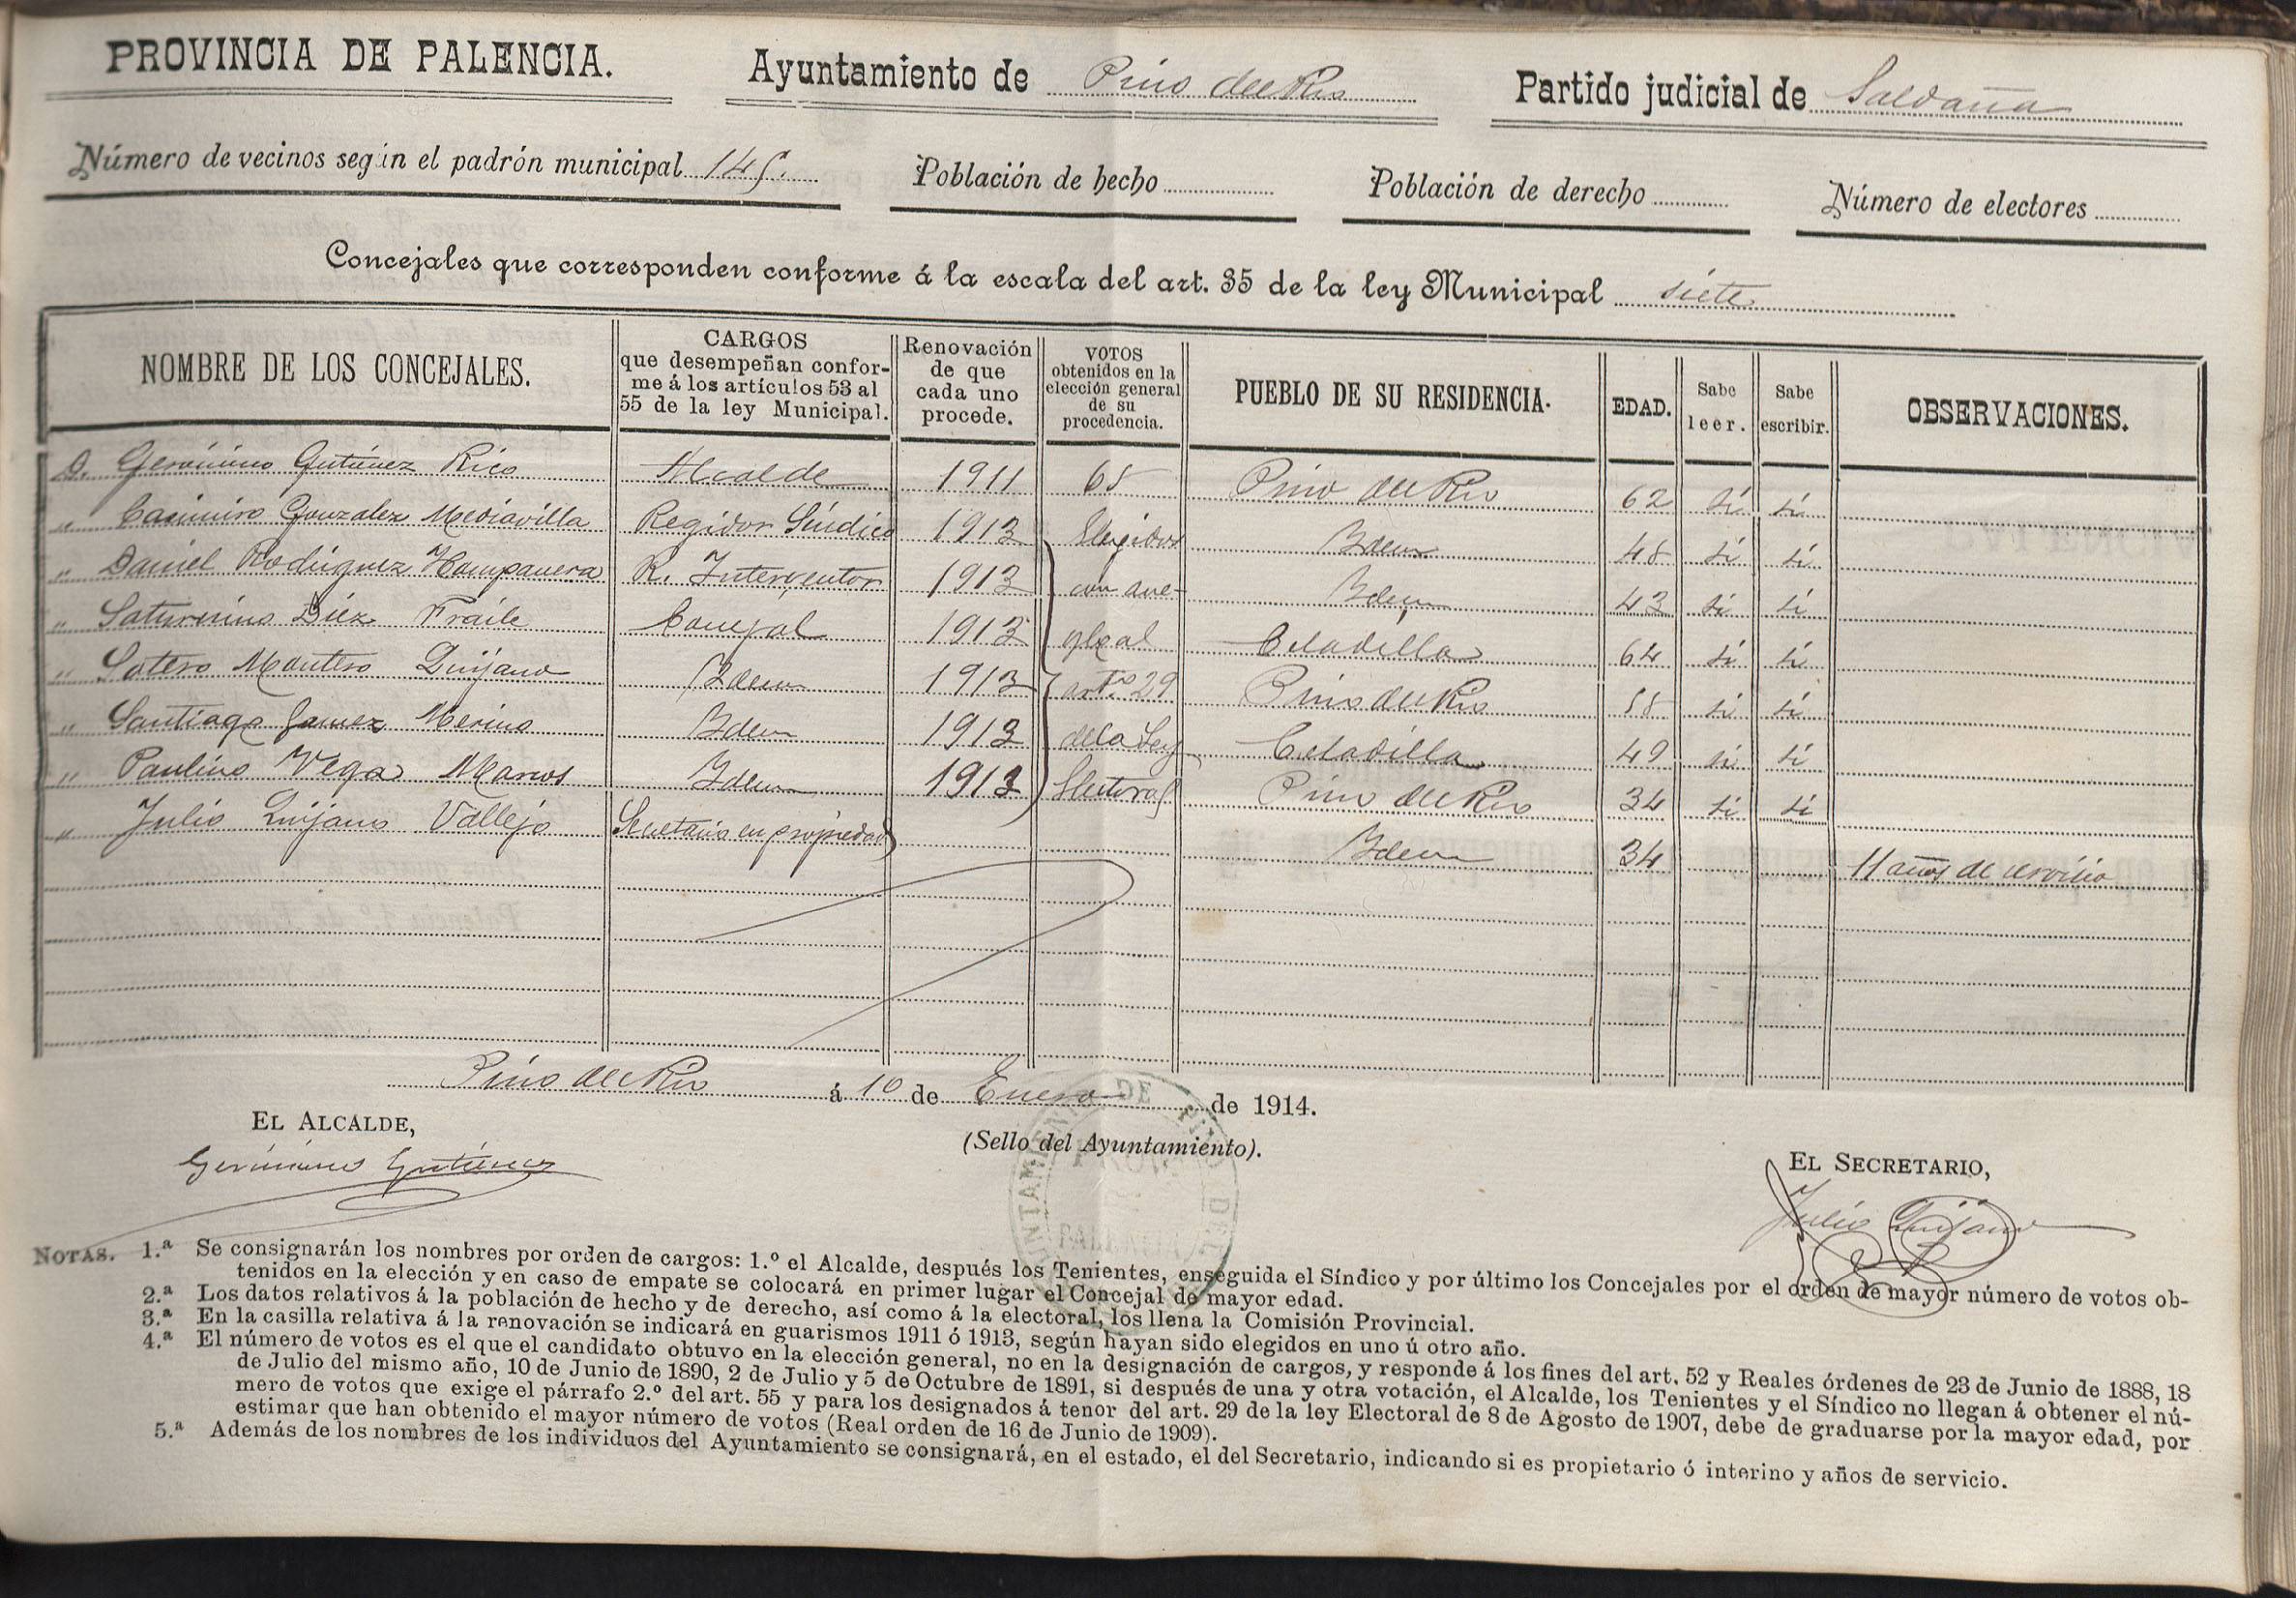 PROVINCIA DE PALENCIA. Ayuntamiento de Pino del Rio Partido judicial de Saldaña
Número de vecinos según el padrón municipal 145. Población de hecho Población de derecho Número de electores
Concejales que corresponden conforme á la escala del art. 35 de la ley Municipal siete
NOMBRE DE LOS CONCEJALES. CARGOS que desempeñan conforme á los artículos 53 al 55 de la ley Municipal. Renovación de que cada uno procede. VOTOS obtenidos en la elección general de su procedencia. PUEBLO DE SU RESIDENCIA. EDAD. Sabe leer. Sabe escribir. OBSERVACIONES.
D. Gerónimo Gutiérrez Rico Alcalde 1911 68 Pino del Rio 62 si si
" Casimiro Gonzalez Mediavilla Regidor Síndico 1913 Elegidos Idem 48 si si
" Daniel Rodriguez Hompanera R. Interventor 1913 con arre- Idem 43 si si
" Saturnino Diéz Fraile Concejal 1913 glo al Celadilla 64 si si
" Sotero Montero Quijano Idem 1913 art.º 29 Pino del Rio 58 si si
" Santiago Gomez Merino Idem 1913 de la Ley Celadilla 49 si si
" Paulino Vega Marcos Idem 1913 Electoral Pino del Rio 34 si si
" Julio Quijano Vallejo Secretario en propiedad Idem 34 11 años de servicio
Pino del Rio á 10 de Enero de 1914.
EL ALCALDE,
(Sello del Ayuntamiento).
EL SECRETARIO,
Gerónimo Gutiérrez
Julio Quijano
NOTAS. 1.ª Se consignarán los nombres por orden de cargos: 1.º el Alcalde, después los Tenientes, enseguida el Síndico y por último los Concejales por el orden de mayor número de votos ob-
tenidos en la elección y en caso de empate se colocará en primer lugar el Concejal de mayor edad.
2.ª Los datos relativos á la población de hecho y de derecho, así como á la electoral, los llena la Comisión Provincial.
3.ª En la casilla relativa á la renovación se indicará en guarismos 1911 ó 1913, según hayan sido elegidos en uno ú otro año.
4.ª El número de votos es el que el candidato obtuvo en la elección general, no en la designación de cargos, y responde á los fines del art. 52 y Reales órdenes de 23 de Junio de 1888, 18
de Julio del mismo año, 10 de Junio de 1890, 2 de Julio y 5 de Octubre de 1891, si después de una y otra votación, el Alcalde, los Tenientes y el Síndico no llegan á obtener el nú-
mero de votos que exige el párrafo 2.º del art. 55 y para los designados á tenor del art. 29 de la ley Electoral de 8 de Agosto de 1907, debe de graduarse por la mayor edad, por
estimar que han obtenido el mayor número de votos (Real orden de 16 de Junio de 1909).
5.ª Además de los nombres de los individuos del Ayuntamiento se consignará, en el estado, el del Secretario, indicando si es propietario ó interino y años de servicio.